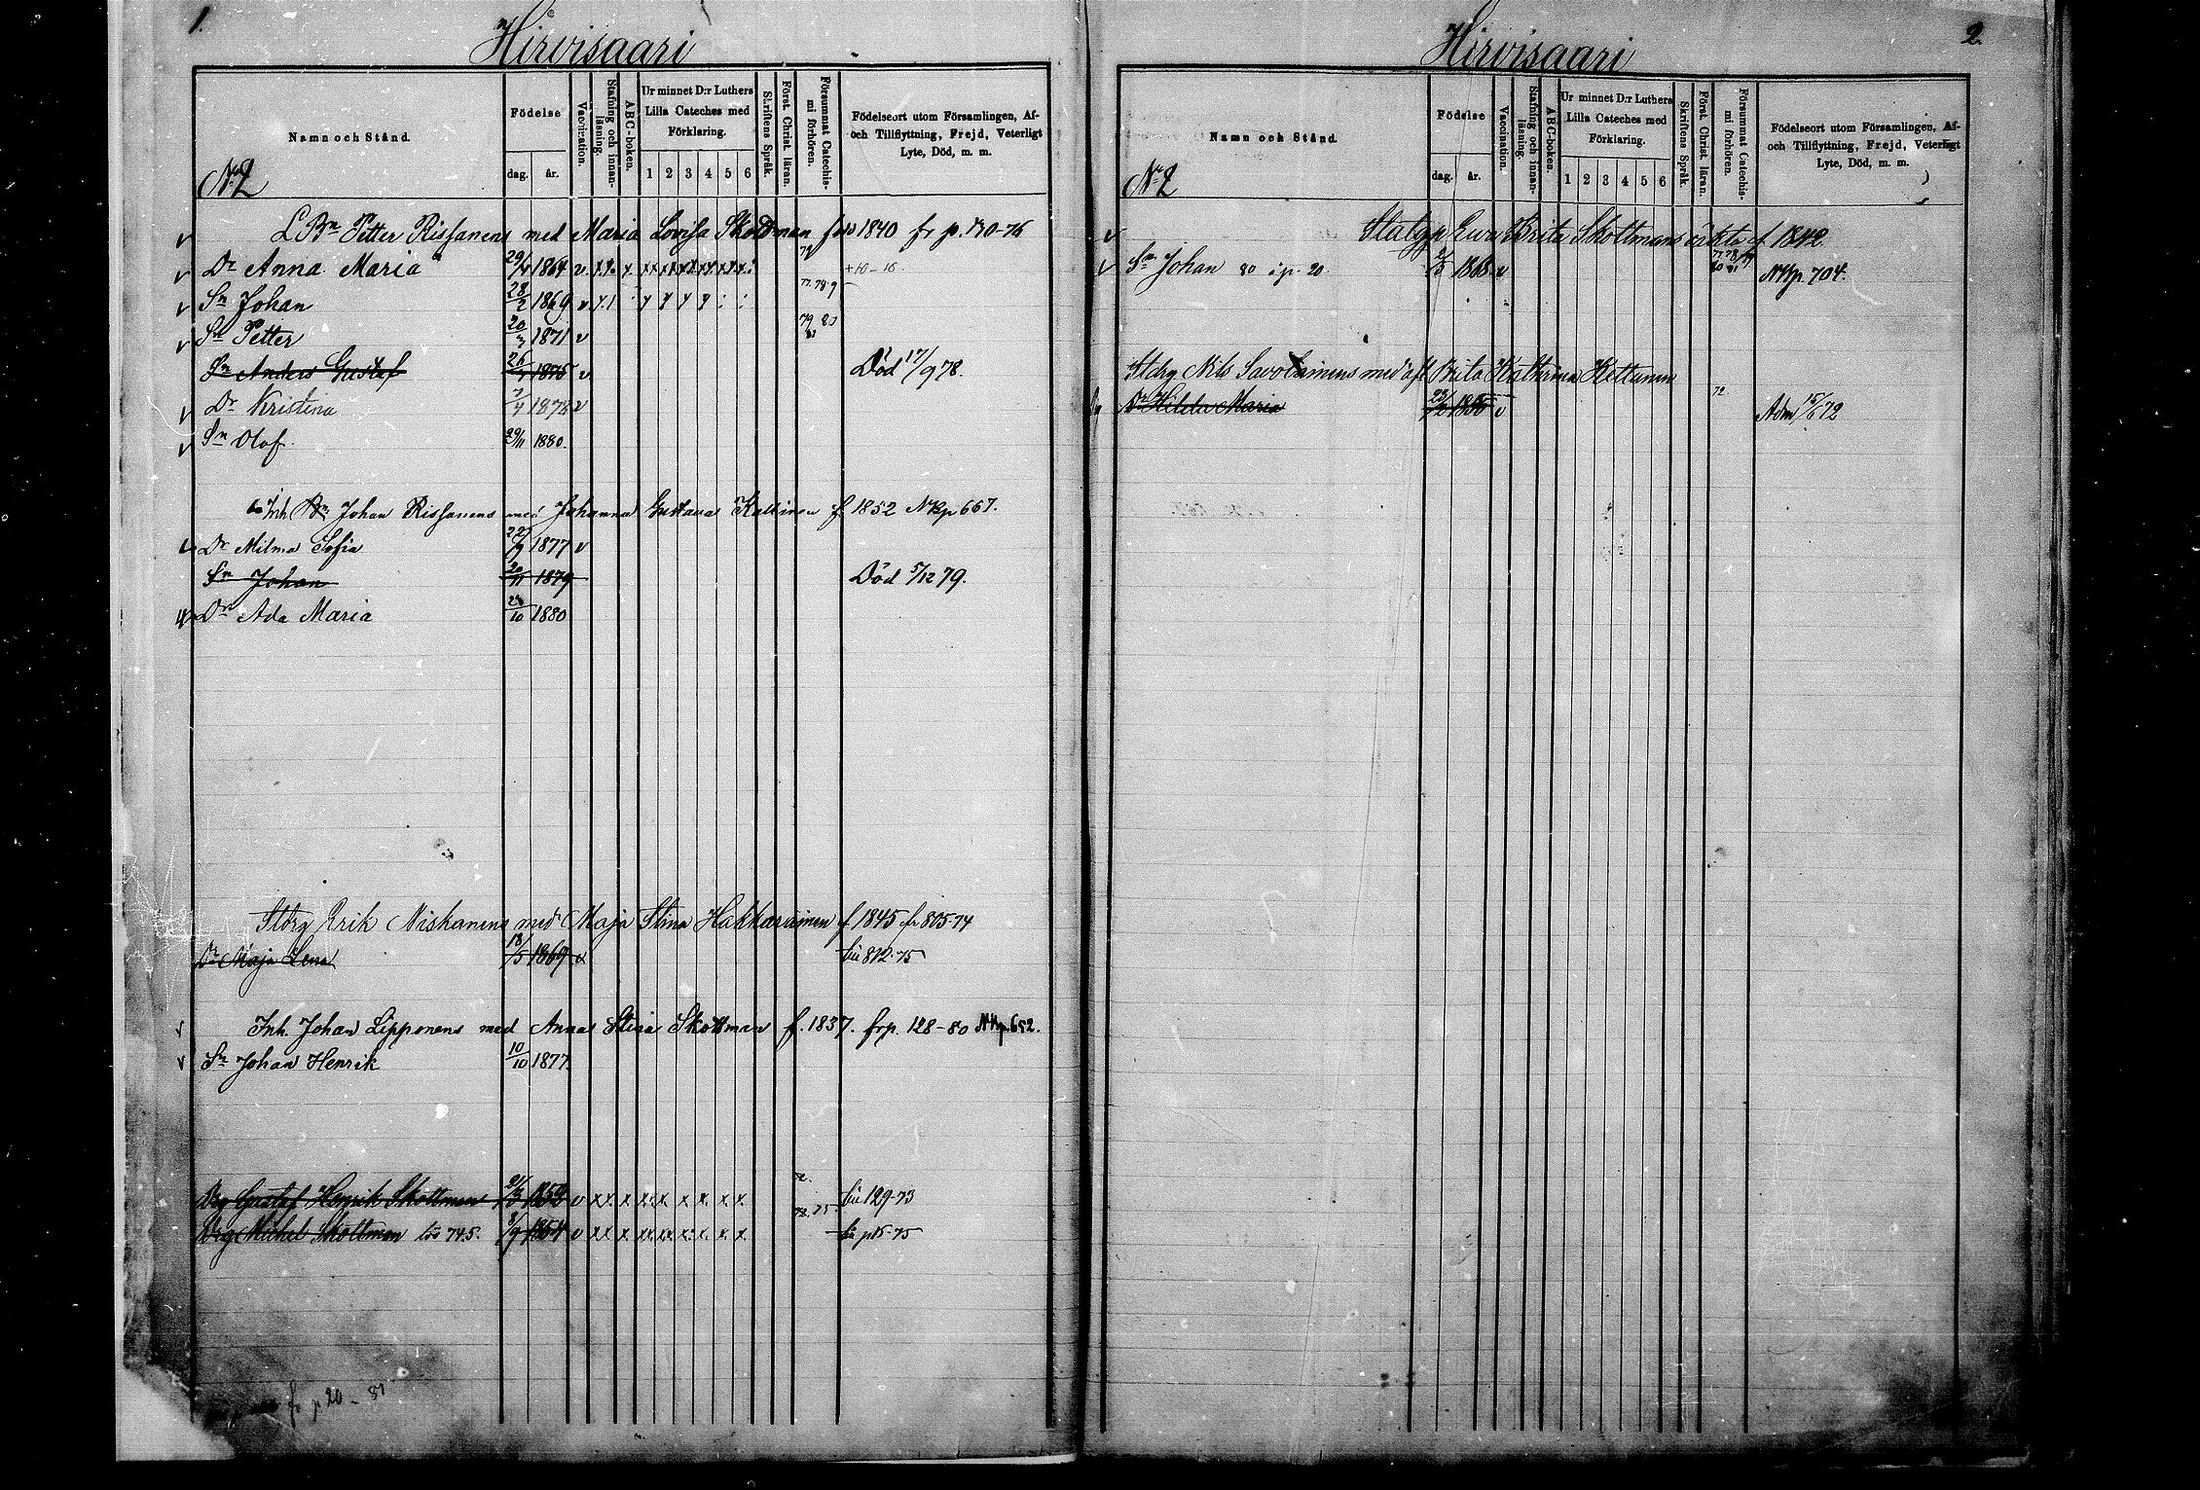 1.
Hirvisaari
Namn och Stånd.
Födelse
dag. år.
Vaccination.
Stafning och innan-läsning.
ABC-boken.
Ur minnet D:r Luthers Lilla Cateches med Förklaring.
1 2 3 4 5 6
Skriftens Språk.
Först. Christ. läran.
Försummat Catechis-mi förhören.
Födelseort utom Församlingen, Af- och Tillflyttning, Frejd, Veterligt Lyte, Död, m. m.
N:2
Petter Rissanens med Maria Lovisa Skottman 1840 fr p. 770-76
v Dr Anna Maria 29/4 1864 v
v Sn Johan 28/2 1869 v 77. 78. 9
v Sn Petter 20/7 1871 v 79 80
Sn Anders Gustaf 1875 v Död 17/9 78.
v Dr Kristina 7/4 1878 v
v Sn Olof 29/11 1880.
Inh. Johan Rissanens med Johanna Gustava f. 1852 NKp 667.
Dr Milma Sofia 1877 v
Sn Johan 20/11 1879 Död 5/12 79.
Dr Ada Maria 1880
Erik Niskanens med Maja Stina Hakkarainen f 1845 fr 805-74
Dr Maja Lena 18/5 1869 v 812-75
v Inh. Johan Lipponens med Anna Stina Skottman f. 1837. frp. 128-80 NKp. 652.
v Sn Johan Henrik 10/10 1877.
Gustaf Henrik Skottman v 129-73
Michel Skottman 745. 8/9 1854 v
fr p 20 - 81
2.
Hirvisaari
Namn och Stånd.
Födelse
dag. år.
Vaccination.
Stafning och innan-läsning.
ABC-boken.
Ur minnet D:r Luthers Lilla Cateches med Förklaring.
1 2 3 4 5 6
Skriftens Språk.
Först. Christ. läran.
Försummat Catechis-mi förhören.
Födelseort utom Församlingen, Af- och Tillflyttning, Frejd, Veterligt Lyte, Död, m. m.
N:2
Brita Skottmans oäkta f. 1842
v Sn Johan 80 i p. 20. 1868 v NKp. 704.
Nils Savolainens med afl Brita Kathrina Kettunen
Dr Hilda Maria v 72. Adm 15/6 72